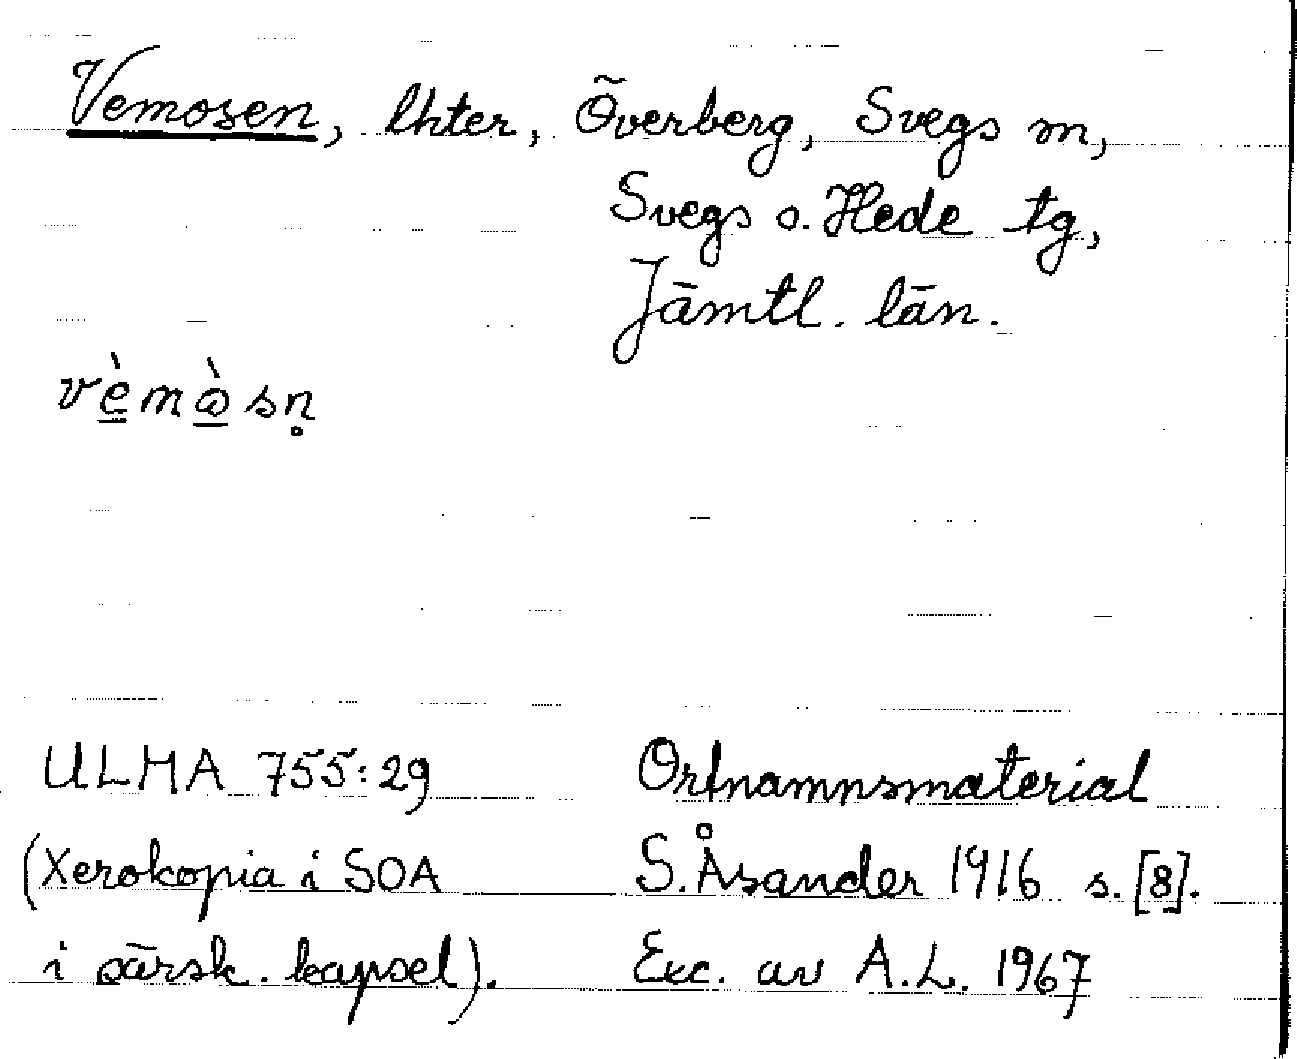 Vemosen, lhter, Överberg, Svegs m,
Svegs o. Hede tg,
Jämtl. län.
vè̲mò̲sn̥
ULMA 755:29
(Xerokopia i SOA
i särsk. kapsel).
Ortnamnsmaterial
S. Åsander 1916 s. [8].
Exc. av A.L. 1967